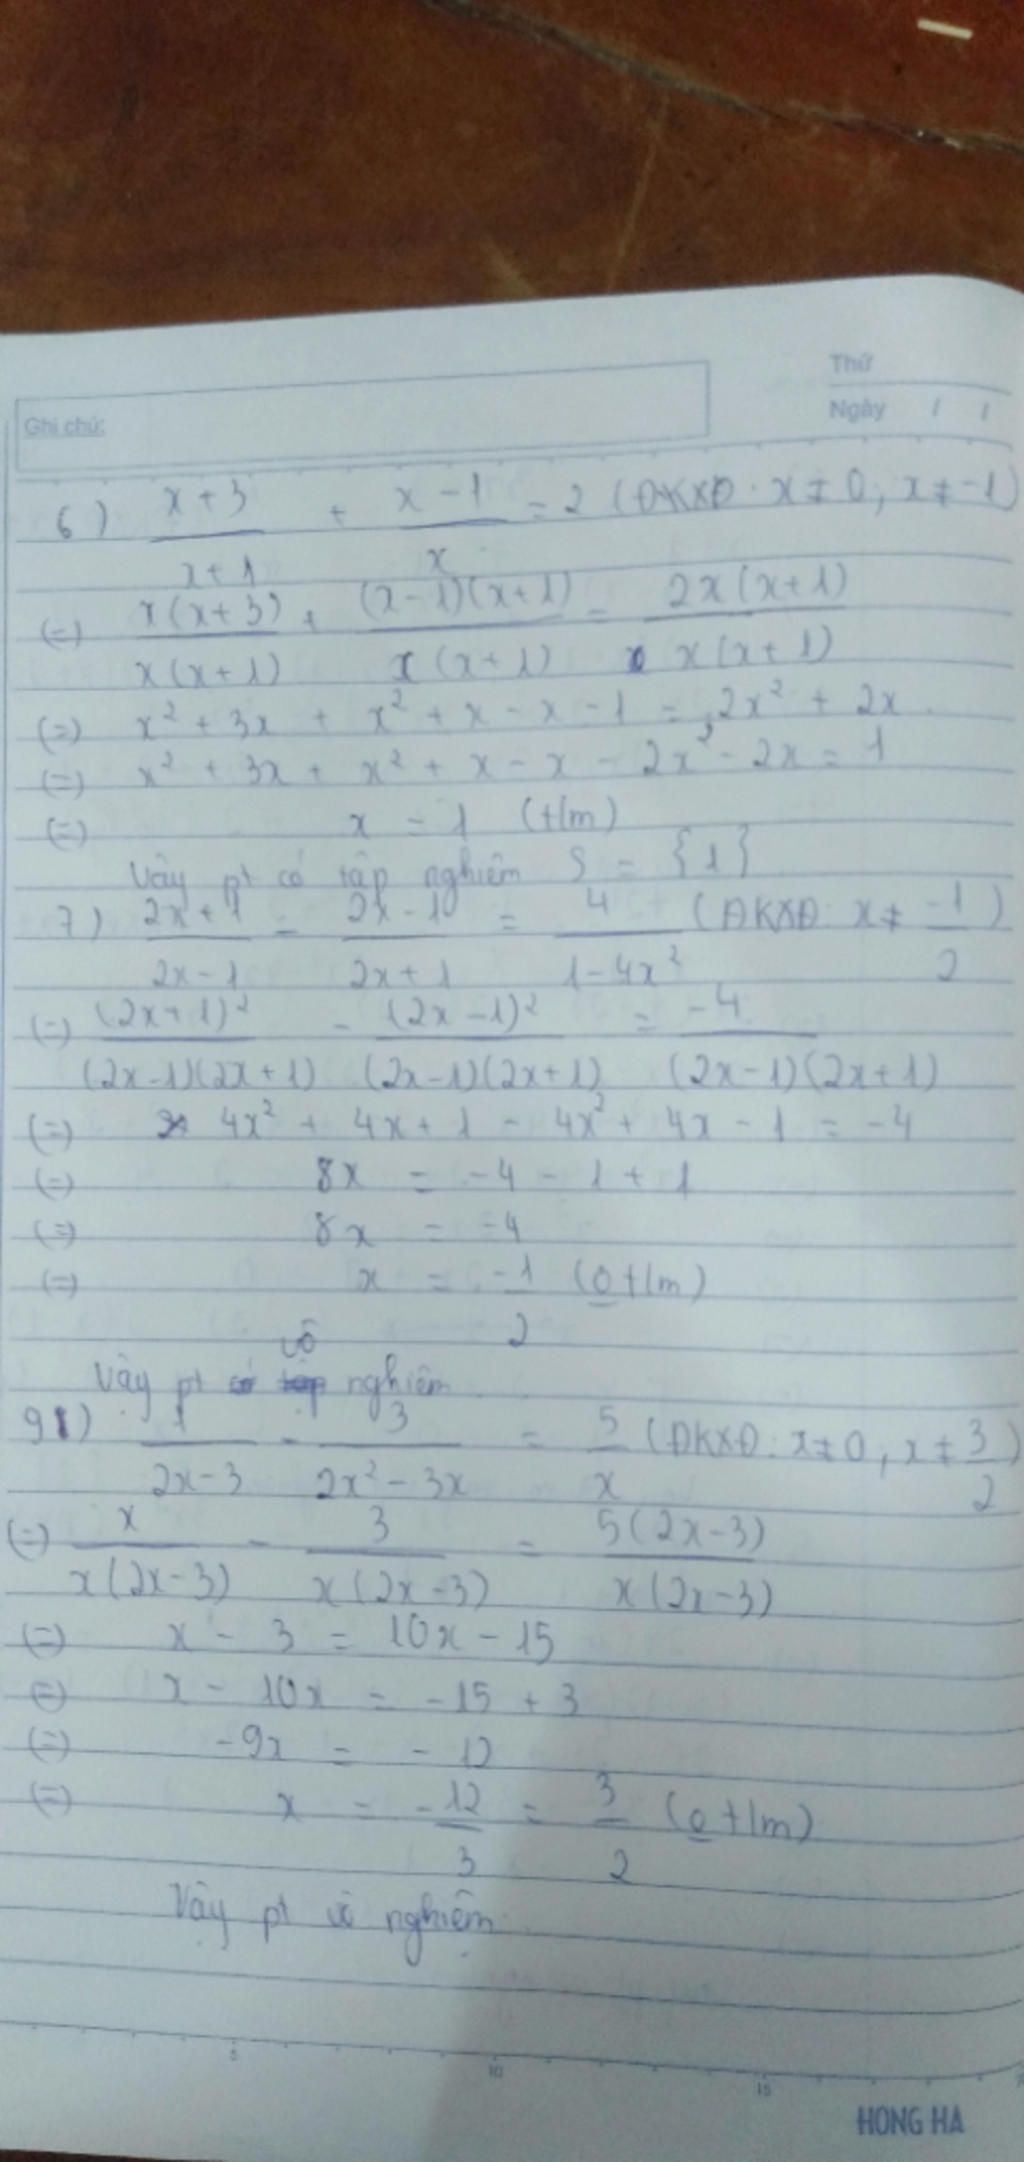 Thứ
Ghi chú:
Ngày / /
6) (x+3)/(x+1) + (x-1)/x = 2 (ĐKXĐ: x≠0, x≠-1)
(=) x(x+3)/x(x+1) + (x-1)(x+1)/x(x+1) = 2x(x+1)/x(x+1)
(=) x² + 3x + x² + x - x - 1 = 2x² + 2x
(=) x² + 3x + x² + x - x - 2x² - 2x = 1
(=) x = 1 (t/m)
Vậy pt có tập nghiệm S = {1}
7) (2x+1)/(2x-1) - (2x-1)/(2x+1) = 4/(1-4x²) (ĐKXĐ: x≠ -1/2)
(=) (2x+1)²/(2x-1)(2x+1) - (2x-1)²/(2x-1)(2x+1) = -4/(2x-1)(2x+1)
(=) 4x² + 4x + 1 - 4x² + 4x - 1 = -4
(=) 8x = -4 - 1 + 1
(=) 8x = -4
(=) x = -1/2 (o t/m)
Vậy pt vô nghiệm
9) 1/(2x-3) - 3/(2x²-3x) = 5/x (ĐKXĐ: x≠0, x≠3/2)
(=) x/x(2x-3) - 3/x(2x-3) = 5(2x-3)/x(2x-3)
(=) x - 3 = 10x - 15
(=) x - 10x = -15 + 3
(=) -9x = -12
(=) x = -12/3 = 3/2 (o t/m)
Vậy pt vô nghiệm
5 10 15
HONG HA